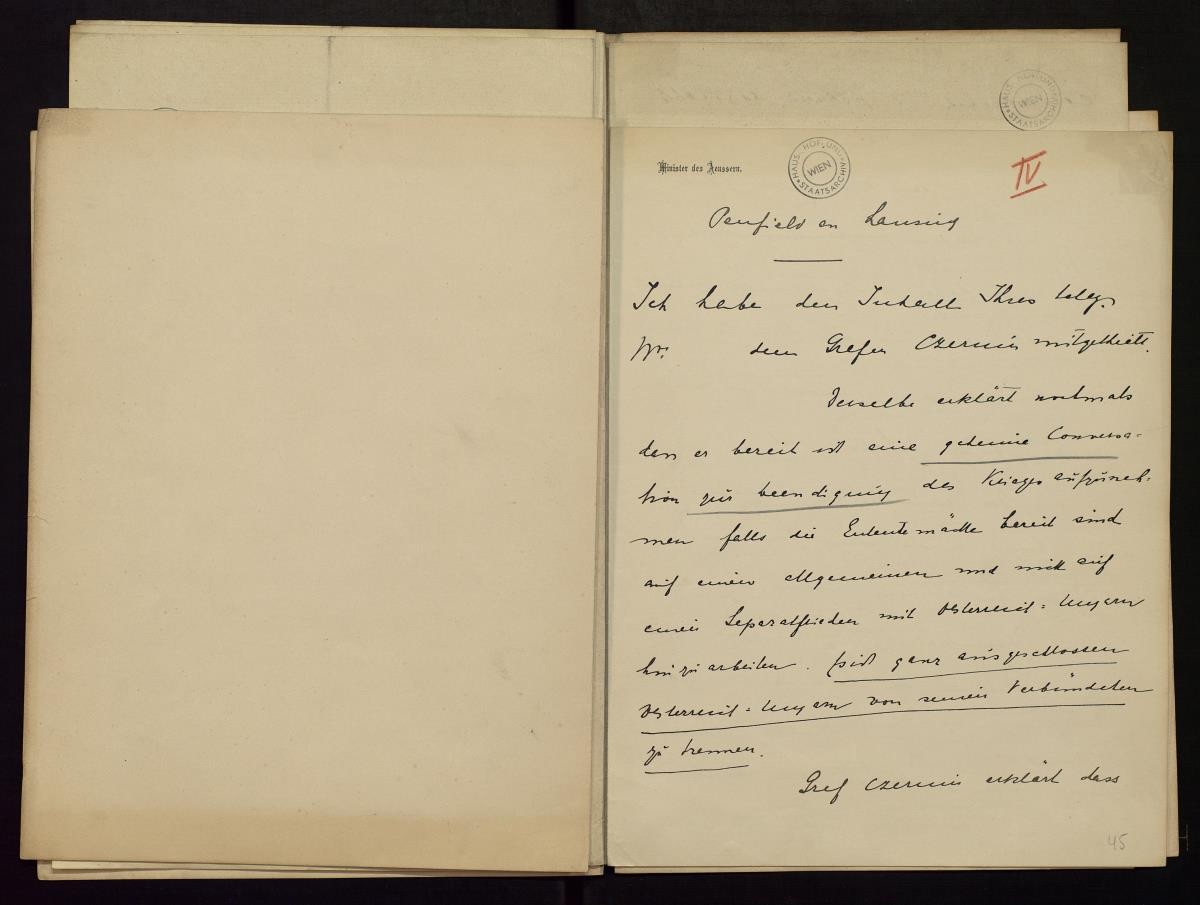 HAUS- HOF- UND STAATSARCHIV WIEN
Minister des Aeussern.
HAUS- HOF- UND STAATSARCHIV WIEN
IV
Penfield an Lansing
Ich habe den Inhalt Ihres teleg.
Nr. dem Grafen Czernin mitgetheilt.
Derselbe erklärt nochmals
dass er bereit ist eine geheime Conversa-
tion zur beendigung des Krieges aufzuneh-
men falls die Ententemächte bereit sind
auf einen allgemeinen und nicht auf
einen Separatfrieden mit Österreich-Ungarn
hinzuarbeiten. Es ist ganz ausgeschlossen
Österreich-Ungarn von seinen Verbündeten
zu trennen.
Graf Czernin erklärt dass
45